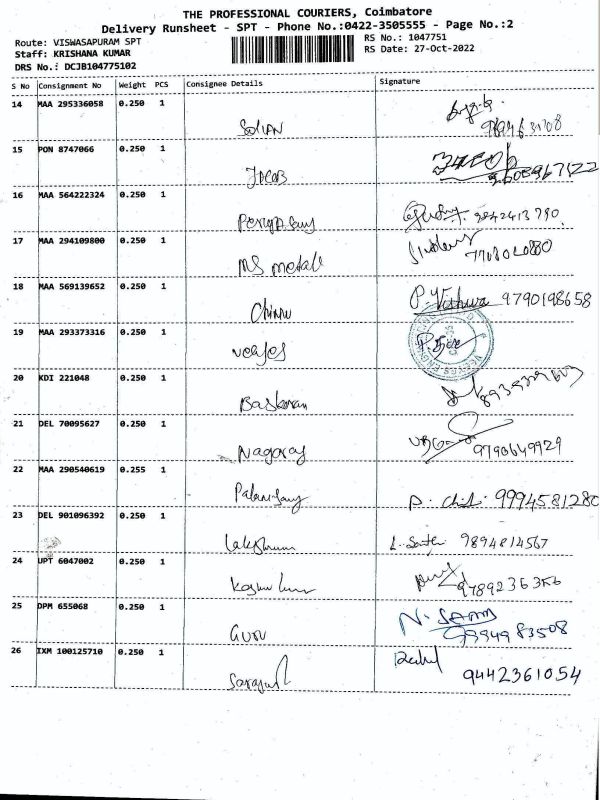 THE PROFESSIONAL COURIERS, Coimbatore
Delivery Runsheet - SPT - Phone No.:0422-3505555 - Page No.:2
Route: VISWASAPURAM SPT RS No.: 1047751
Staff: KRISHANA KUMAR RS Date: 27-Oct-2022
DRS No.: DCJB104775102
S No Consignment No Weight PCS Consignee Details Signature
14 MAA 295336058 0.250 1
15 PON 8747066 0.250 1 Jacob
16 MAA 564222324 0.250 1 9842413790.
17 MAA 294109800 0.250 1 MS metals
18 MAA 569139652 0.250 1 Chinnu P. Vishwa 9790198658
19 MAA 293373316 0.250 1
20 KDI 221048 0.250 1 Baskaran
21 DEL 70095627 0.250 1 Nagaraj 9790649929
22 MAA 290540619 0.255 1 Palanisamy 9994581280
23 DEL 901096392 0.250 1 9894814567
24 UPT 6047002 0.250 1
25 DPM 655068 0.250 1 GURU 9994983508
26 IXM 100125710 0.250 1 9442361054